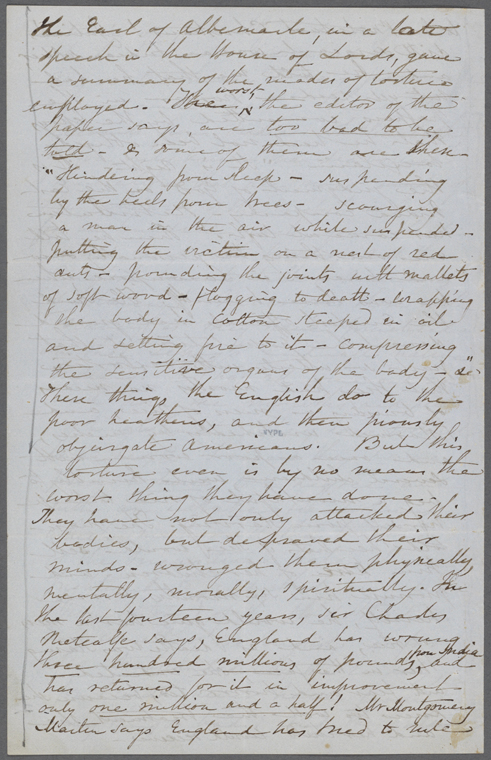 the Earl of Albemarle, in a late
speech in the House of Lords, gave
a summary of the modes of torture
employed. The worst, the editor of the
paper says, are too bad to be
told - & some of them are these
"Hindering from sleep - suspending
by the heels from trees - scourging
a man in the air while suspended -
putting the victim on a nest of red
ants - pounding the joints with mallets
of soft wood - flogging to death - wrapping
the body in cotton steeped in oil
and setting fire to it - compressing
the sensitive organs of the body - &c"
These things the English do to the
poor heathens, and then piously
objurgate Americans. But this
torture even is by no means the
worst thing they have done.
They have not only attacked their
bodies, but depraved their
minds - wronged them physically,
mentally, morally, spiritually. In
the last fourteen years, Sir Charles
Metcalfe says, England has wrung
from India
three hundred millions of pounds, and
has returned for it in improvement
only one million and a half! Mr Montgomery
Martin says England has tried to rule